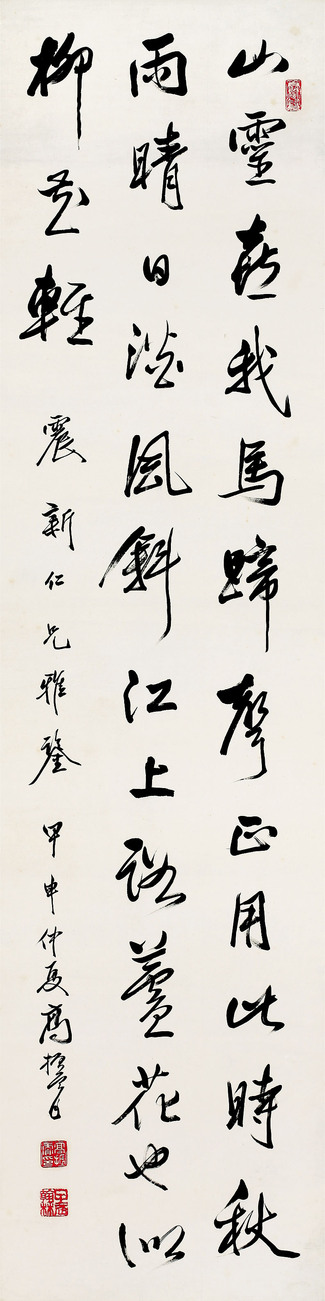 山靈喜我馬蹄聲正用此時秋
雨晴日淡風斜江上路蘆花也似
柳花輕
震新仁兄雅鑒
甲申仲夏高振霄